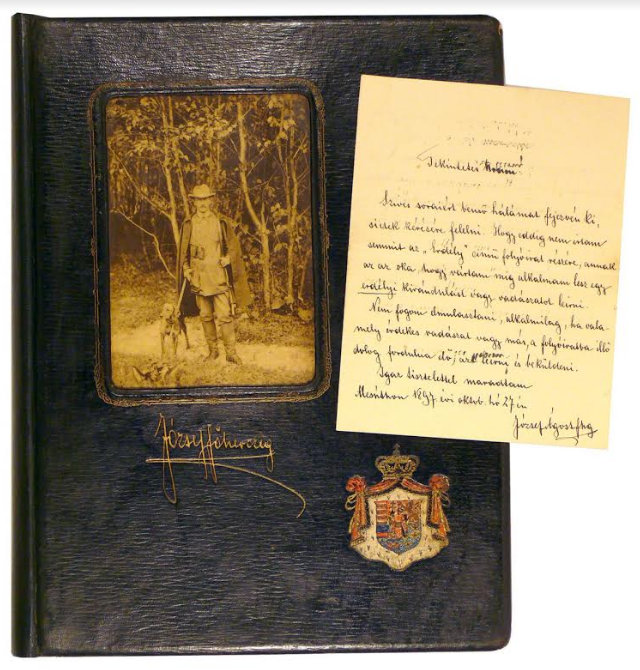 József főherczeg
Tekintetes
Szives soraiért benső hálámat fejezvén ki,
sietek kérésére felelni. Hogy eddig nem irtam
semmit az „Erdély" czimü folyóirat részére, annak
az az oka, hogy vártam mig alkalmam lesz egy
erdélyi kirándulást vagy vadászatot leirni.
Nem fogom elmulasztani, alkalmilag, ha vala-
mely érdekes vadászat vagy más, a folyóiratba illő
dolog fordulna elő, azt leirni, és beküldeni.
Igaz tisztelettel maradtam
Mesúthon 1897. évi oktb. hó 27én
József Ágost fhg